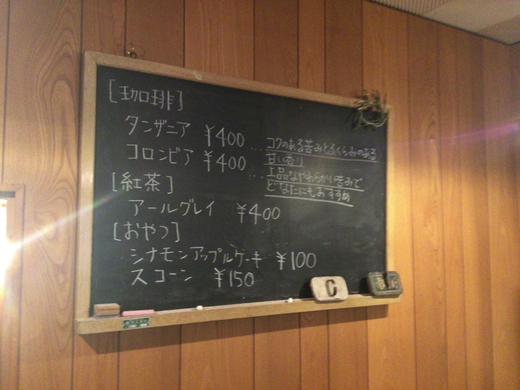 [珈琲]
タンザニア ¥400 … コクのある苦みとふくらみのある
甘い香り
コロンビア ¥400 … 上品なやわらかい苦みで
どなたにもおすすめ
[紅茶]
アールグレイ ¥400
[おやつ]
シナモンアップルケーキ ¥100
スコーン ¥150
C